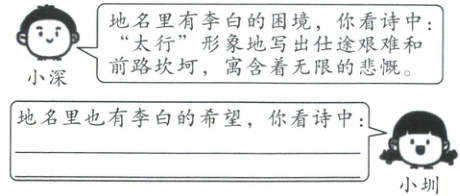 地名里有李白的困境，你看诗中：
“太行”形象地写出仕途艰难和
前路坎坷，寓含着无限的悲慨。
小深
地名里也有李白的希望，你看诗中：
小圳